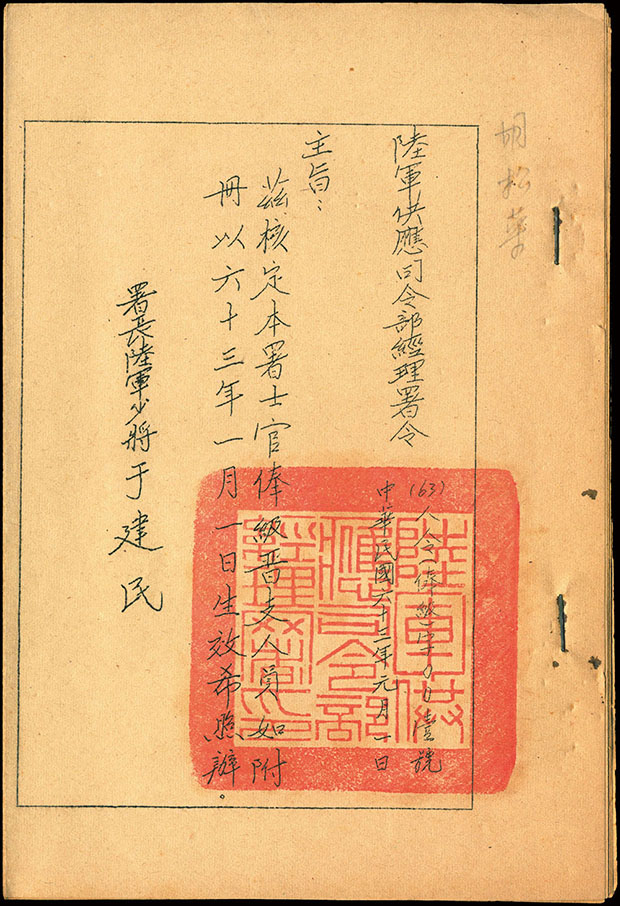 胡松華
陸軍供應司令部經理署令
(63)人令(俸)字00陸號
中華民國六十三年元月一日
主旨：
茲核定本署士官俸級晋支人員如附
冊以六十三年一月一日生效希照辦。
署長陸軍少將于建民
陸軍供
應司令部
經理署印